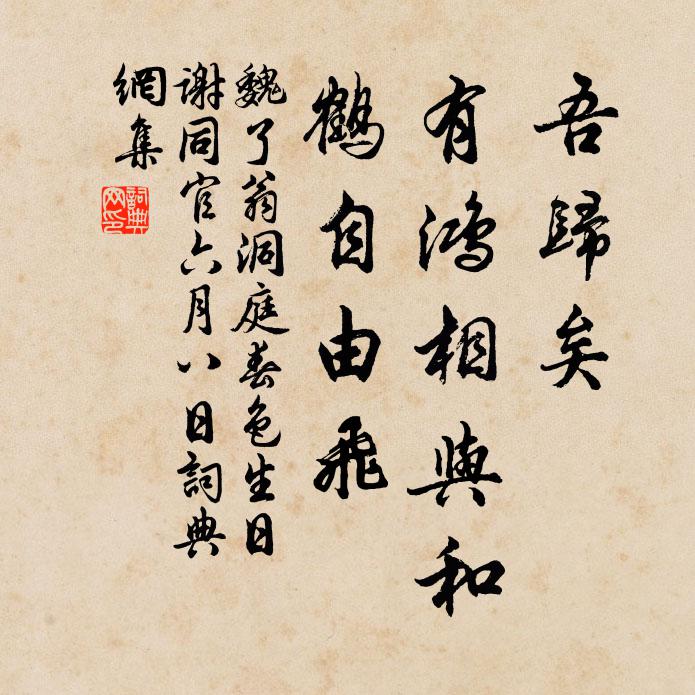 吾歸矣
有鴻相與和
鶴自由飛
魏了翁洞庭春色生日
謝同官六月八日詞典
網集
詞典
网印